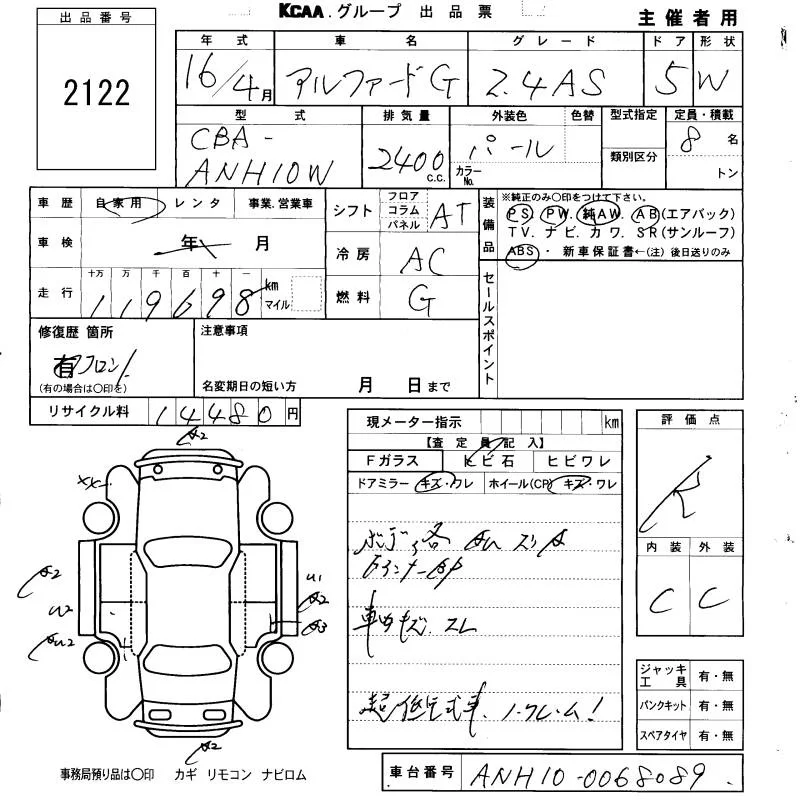 出品番号 KCAA.グループ 出品票 主催者用
2122
年式 車名 グレード ドア 形状
16/4月 アルファードG 2.4AS 5 W
型式 排気量 外装色 色替 型式指定 定員・積載
CBA-
ANH10W 2400 c.c. パール カラーNo. 類別区分 8名 トン
車歴 自家用 レンタ 事業.営業車 シフト フロア コラム パネル AT
装備品 ※純正のみ〇印をつけて下さい。
PS. PW. 純AW. AB(エアバック)
TV. ナビ. カワ. SR(サンルーフ)
ABS ・ 新車保証書←(注) 後日送りのみ
車検 年 月 冷房 AC
走行 十万 万 千 百 十 一
119698 km マイル 燃料 G
セールスポイント
修復歴 箇所 注意事項
有 フロント
(有の場合は〇印を) 名変期日の短い方 月 日まで
リサイクル料 14480円
現メーター指示 km
【査定員記入】
Fガラス トビ石 ヒビワレ
ドアミラー キズ・ワレ ホイール(CP) キズ・ワレ
評価点
R
内装 外装
C C
A2
XX
A2
U2
AU2
U1
A2
A3
A2
ボディ各
車内キズ.スレ
ジャッキ工具 有・無
パンクキット 有・無
スペアタイヤ 有・無
事務局預り品は〇印 カギ リモコン ナビロム
車台番号 ANH10-0068089